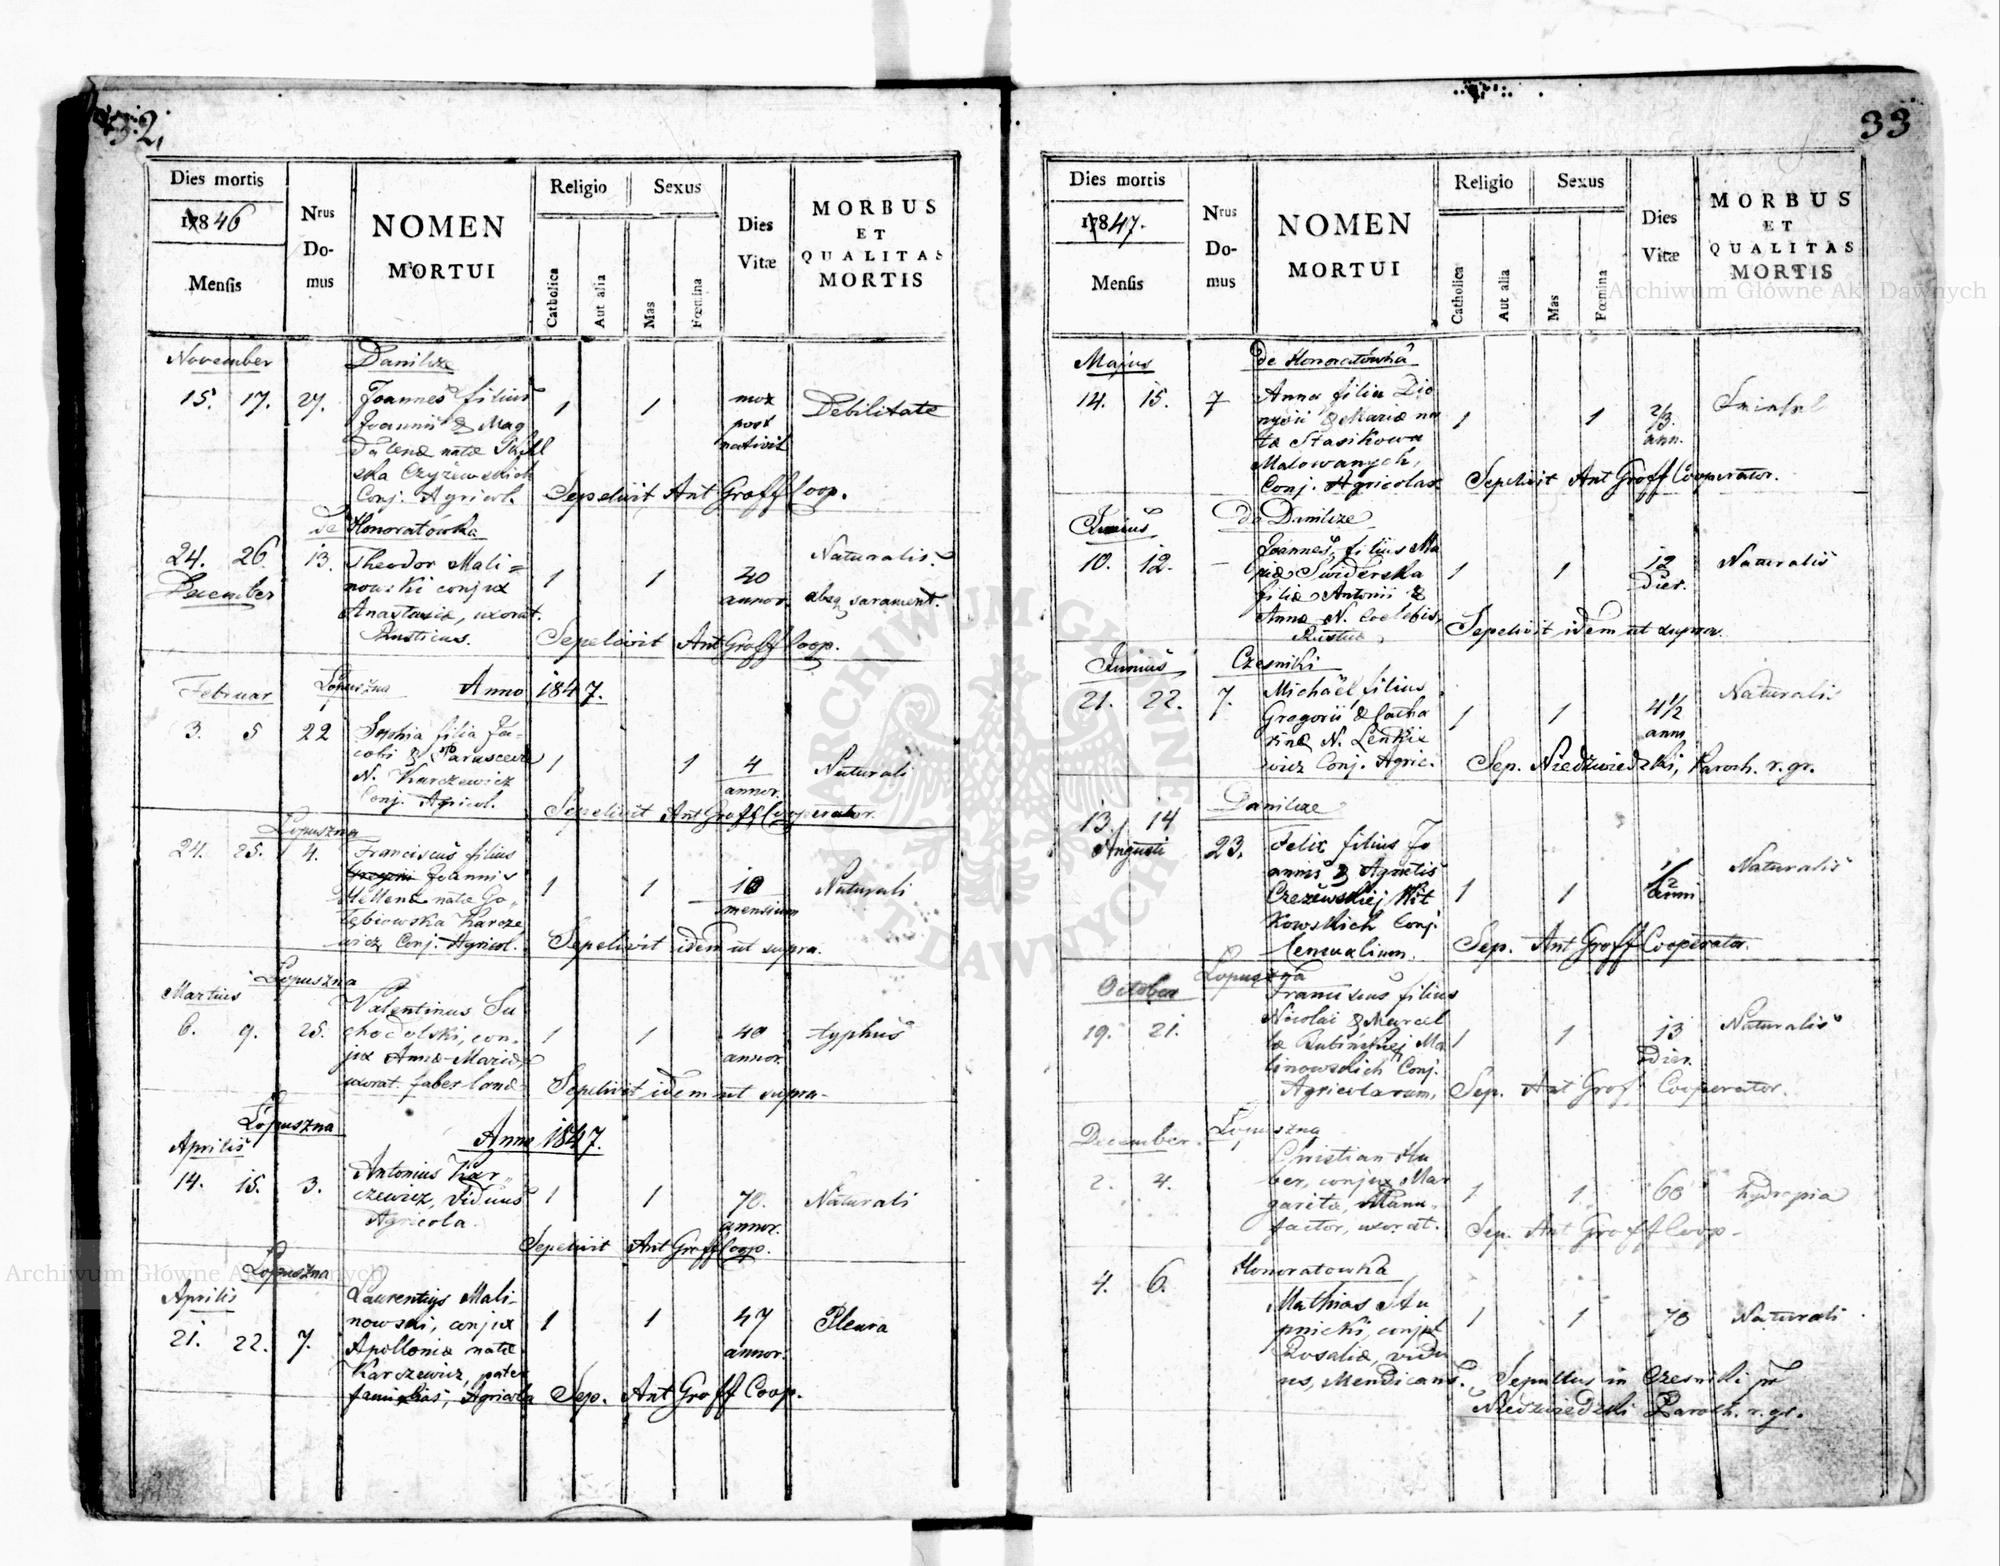 32,
Dies mortis
1846
Mensis
Nrus
Do-
mus
NOMEN
MORTUI
Religio
Catholica
Aut alia
Sexus
Mas
Fœmina
Dies
Vitæ
MORBUS
ET
QUALITAS
MORTIS
November
Danilcze
15. 17. 27.
Joannes filius
Joannis & Mag
dalenæ natæ
ska Czyżewskich
Conj. Agricol.
1 1
mox
post
nativit
Debilitate
Sepelivit Ant Groff Coop.
de Honoratówka
24. 26. 13.
December
Theodor Mali=
nowski conjux
Anastasiæ, uxorat.
Rusticus.
1 1
40
annor.
Naturalis.
absq sarament.
Sepelivit Ant Groff Coop.
Februar Łopuszna Anno 1847.
3. 5 22
Sophia filia Ja-
cobi & Parascevæ
N. Karczewicz
Conj. Agricol.
1 1
4
annor.
Naturali
Sepelivit Ant Groff Cooperator.
Łopuszna
24. 25. 4.
Franciscus filius
Joannis
& Helenæ natæ Go-
łębiowska Karcze
wicz Conj. Agricol.
1 1
10
mensium
Naturali
Sepelivit idem ut supra.
Łopuszna
Martius
6. 9. 25.
Valentinus Su
chodolski, con-
jux Annæ-Mariæ,
uxorat. faber
1 1
40
annor.
typhus
Sepelivit idem ut supra-
Łopuszna
Aprilis
Anno 1847.
14. 15. 3.
Antonius Kar-
czewicz, viduus
Agricola.
1 1
70.
annor.
Naturali
Sepelivit Ant Groff Coop.
Łopuszna
Aprilis
21. 22. 7.
Laurentius Mali-
nowski, conjux
Apolloniæ natæ
Karczewicz, pater
familias, Agricola
1 1
47
annor.
Pleura
Sep. Ant Groff Coop.
33
Dies mortis
1847.
Mensis
Nrus
Do-
mus
NOMEN
MORTUI
Religio
Catholica
Aut alia
Sexus
Mas
Fœmina
Dies
Vitæ
MORBUS
ET
QUALITAS
MORTIS
Majus
de Honoratówka
14. 15. 7
Anna filia Dio
nysii & Mariæ na
tæ Stasikowa
Malowanych,
Conj. Agricolar
1 1
2/3
ann.
Sepelivit Ant Groff Cooperator.
Junius
de Danilcze
10. 12. -
Joannes, filius Ma
riæ Swiderska
filiæ Antonii &
Annæ N. Coelebis,
Rusticæ
1 1
12
dier.
Naturalis
Sepelivit idem ut supra.
Junius
Czesniki
21. 22. 7.
Michaël filius
Gregorii & Catha
rinæ N. Lenkie
wicz Conj. Agric.
1 1
4 1/2
ann
Naturalis
Sep. Niedzwiedzki, Paroch. r. gr.
Danilcze
13. 14
Augusti
23.
Felix filius Jo
annis & Agnetis
Czeżewskiej Wit
kowskich Conj.
1 1
1/2
anni
Naturalis
Sep. Ant Groff Cooperator.
October
Łopuszna
19. 21.
Franciscus filius
Nicolai & Marcel
læ Ma
linowskich Conj.
Agricolarum,
1 1
13
dier.
Naturalis
Sep. Ant Grof Cooperator.
December
Łopuszna
2. 4.
Christian Hu
ber, conjux Mar
garitæ, Manu-
factor, uxorat.
1 1
60
hydropia
Sep. Ant Groff Coop-
Honoratowka
4. 6.
Mathias Stu
pnicki, conjux
Rosaliæ, vidu
us, Mendicans.
1 1
70
Naturali
Sepultus in Czesniki pr
Niedzwiedzki Paroch. r. gr.
Archiwum Główne Akt Dawnych
Archiwum Główne Akt Dawnych
ARCHIWUM GŁÓWNE AKT DAWNYCH